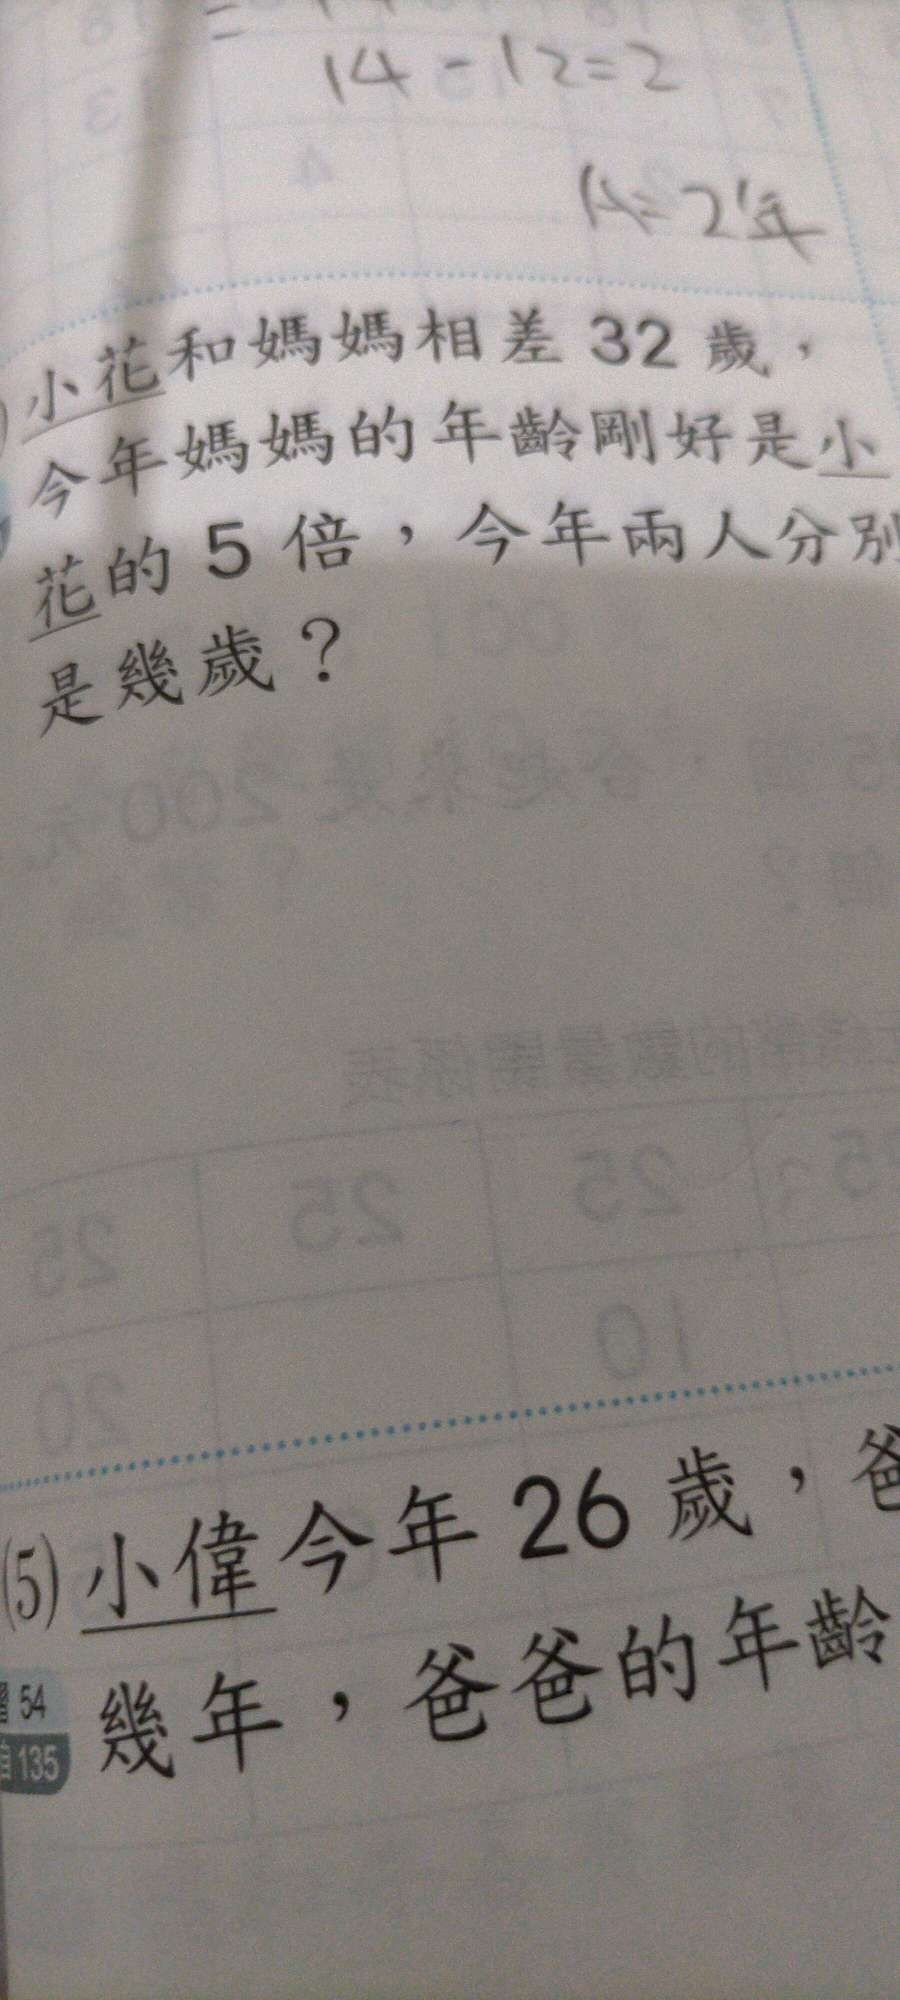 14-12=2
A=2年
小花和媽媽相差 32 歲，
今年媽媽的年齡剛好是小
花的 5 倍，今年兩人分別
是幾歲？
(5) 小偉今年 26 歲，爸
幾年，爸爸的年齡
54
135